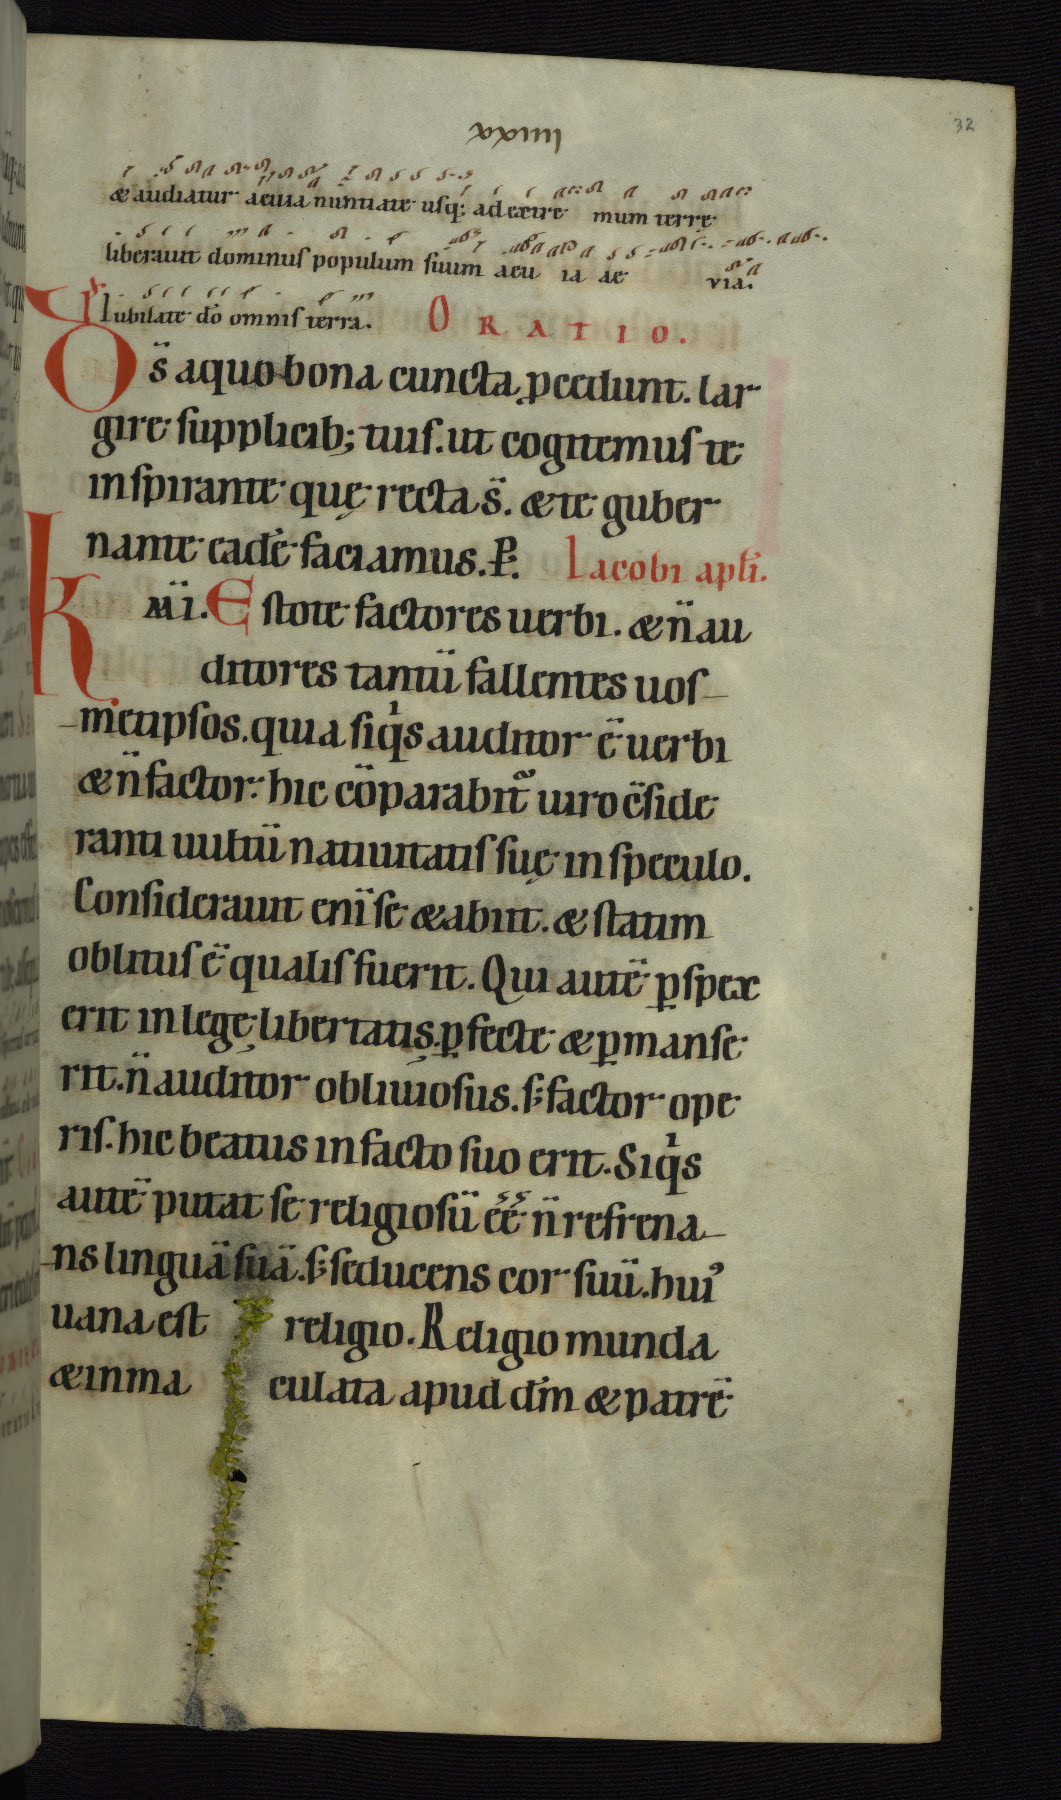 xxxiiii
32
& audiatur aeuia nuntiate usq; ad extre mum terrę
liberauit dominus populum suum aeu ia ae via.
Iubilate dō omnis terra. ORATIO.
Ds̄ a quo bona cuncta ꝓcedunt. lar
gire supplicib; tuis. ut cogitemus te
inspirante quę recta s̄. & te guber
nante eadē faciamus. P̄. Iacobi apłi.
K m̄i. Estote factores uerbi. & n̄ au
ditores tantū fallentes uos
metipsos. quia siqͥs auditor ē uerbi
& n̄ factor. hic cōparabit᷑ uiro c̄side
ranti uultū natiuitatis suę in speculo.
Considerauit enī se & abiit. & statim
oblitus ē qualis fuerit. Qui autē ꝑspex
erit in legę libertatis ꝑfecte & ꝑmanse
rit. n̄ auditor obliuiosus. s; factor ope
ris. hic beatus in facto suo erit. Siqͥs
autē putat se religiosū ēē n̄ refrena
ns linguā suā. s; seducens cor suū. hui᾽
uana est religio. Religio munda
& inma culata apud dm̄ & patrē